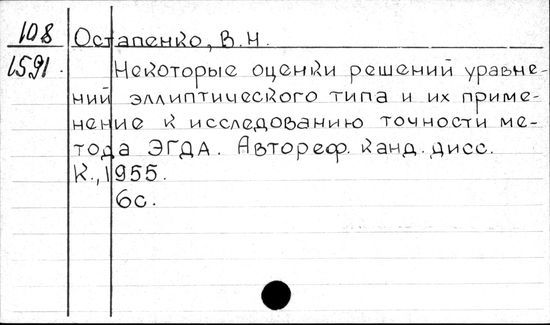 108 Остапенко, В.Н.
1591. Некоторые оценки решений уравне-
ний эллиптического типа и их приме-
нение к исследованию точности ме-
тода ЭГДА. Автореф. канд. дисс.
К., 1955.
6с.